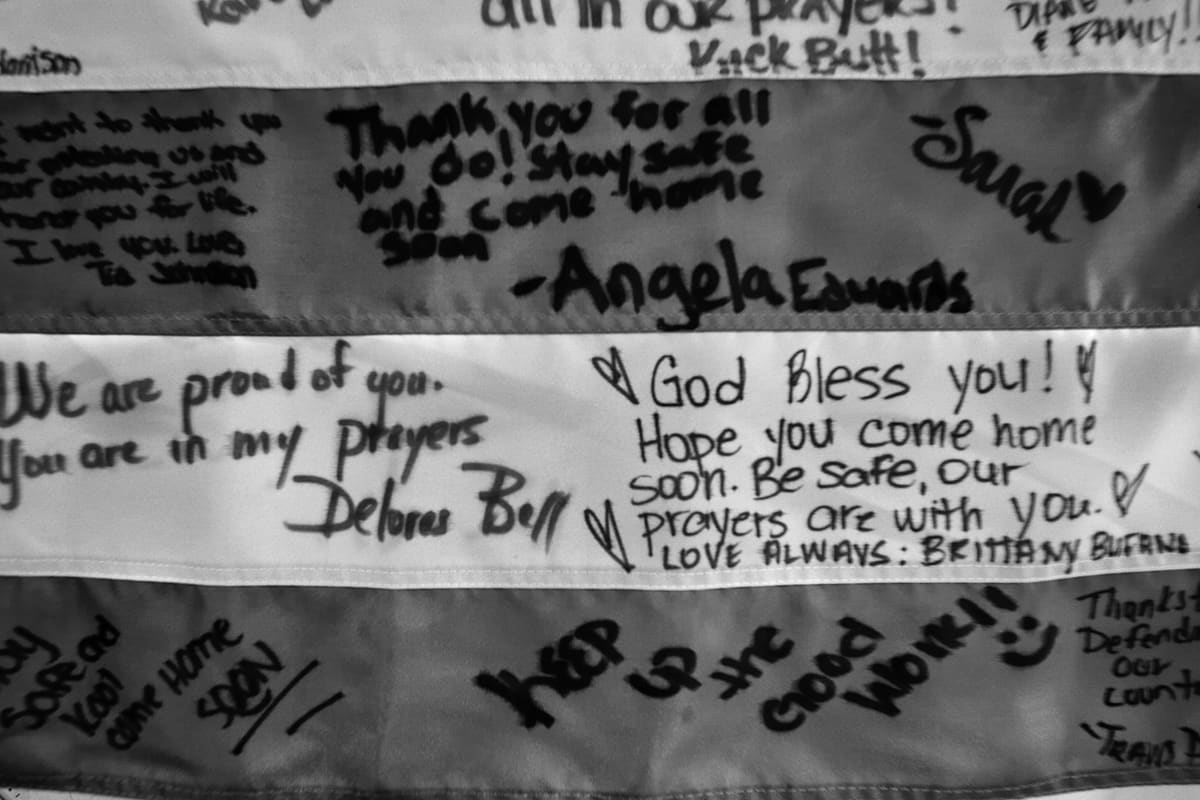 all in our prayers!
Kick Butt!
& FAMILY!!
Harrison
I want to thank you
for protecting us and
our country. I will
honor you for life.
I love you. Love,
Tia Johnson
Thank you for all
you do! Stay safe
and come home
soon
-Angela Edwards
-Sarah
We are proud of you.
You are in my prayers
Delores Bell
God Bless you!
Hope you come home
soon. Be safe, our
prayers are with you.
LOVE ALWAYS: BRITTANY
SAFE and
Kool
come HOME
SOON
KEEP UP the GOOD WORK!!
Thanks
Defend
our
count